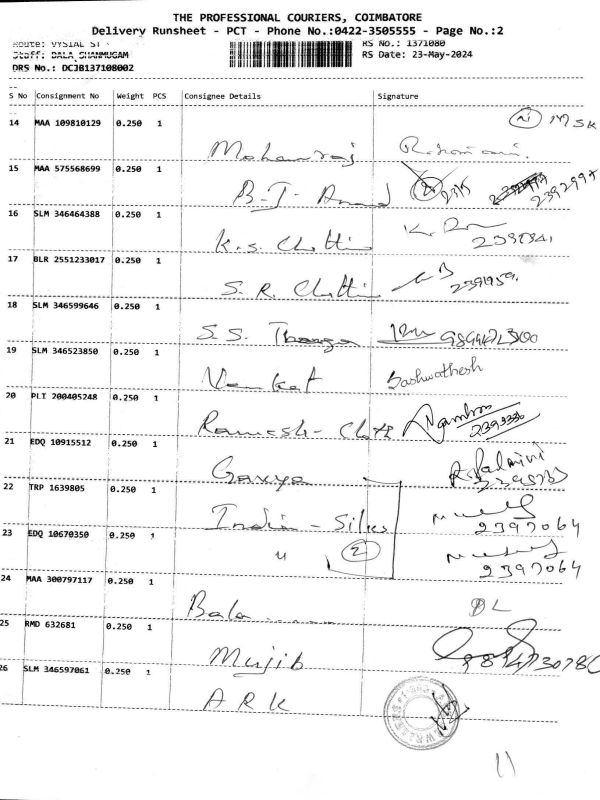 THE PROFESSIONAL COURIERS, COIMBATORE
Delivery Runsheet - PCT - Phone No.:0422-3505555 - Page No.:2
Route: VYSIAL ST RS No.: 1371080
Staff: BALA SHANMUGAM RS Date: 23-May-2024
DRS No.: DCJB137108002
S No Consignment No Weight PCS Consignee Details Signature
14 MAA 109810129 0.250 1
Mohanraj
15 MAA 575568699 0.250 1
B-J- Anand 2392997
16 SLM 346464388 0.250 1
K.S. Chetti
17 BLR 2551233017 0.250 1
S. R. Chetti
18 SLM 346599646 0.250 1
S.S. Thanga
19 SLM 346523850 0.250 1
Venkat Sashwathesh
20 PLI 200405248 0.250 1
Ramesh- Cloth
21 EDQ 10915512 0.250 1
Gavya R. Palmini
22 TRP 1639805 0.250 1
India - Silks 2397064
23 EDQ 10670350 0.250 1
" 2 2397064
24 MAA 300797117 0.250 1
Bala
25 RMD 632681 0.250 1
Mujib
26 SLM 346597061 0.250 1
A R K
11